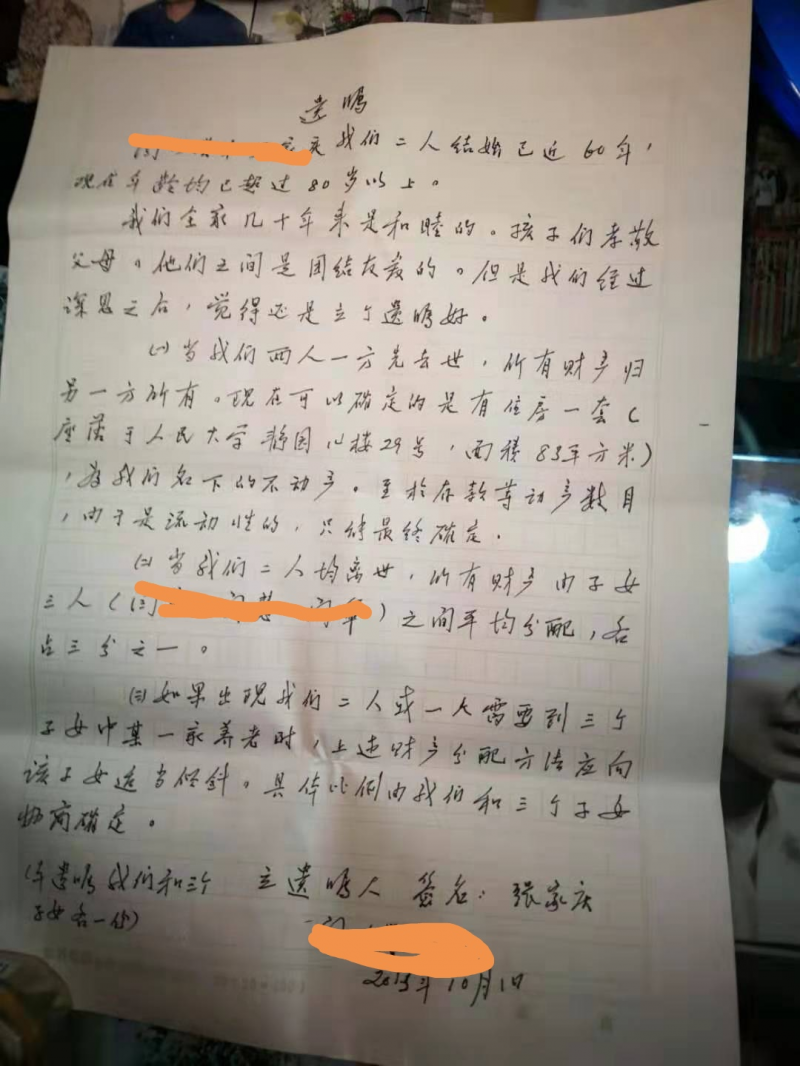 遗嘱
我们二人结婚已近60年，
现在年龄均已超过80岁以上。
我们全家几十年来是和睦的。孩子们孝敬
父母。他们之间是团结友爱的。但是我们经过
深思之后，觉得还是立个遗嘱好。
(一)当我们两人一方先去世，所有财产归
另一方所有。现在可以确定的是有住房一套(
座落于人民大学静园 楼29号，面积83平方米)
，为我们名下的不动产。至於存款等动产数目
，由于是流动性的，只待最终确定。
(二)当我们二人均离世，所有财产由子女
三人( )之间平均分配，各
占三分之一。
(三)如果出现我们二人或一人需要到三个
子女中某一家养老时，上述财产分配方法应向
该子女适当倾斜。具体比例由我们和三个子女
协商确定。
(本遗嘱我们和三个 立遗嘱人 签名：张家庆
子女各一份)
10月1日